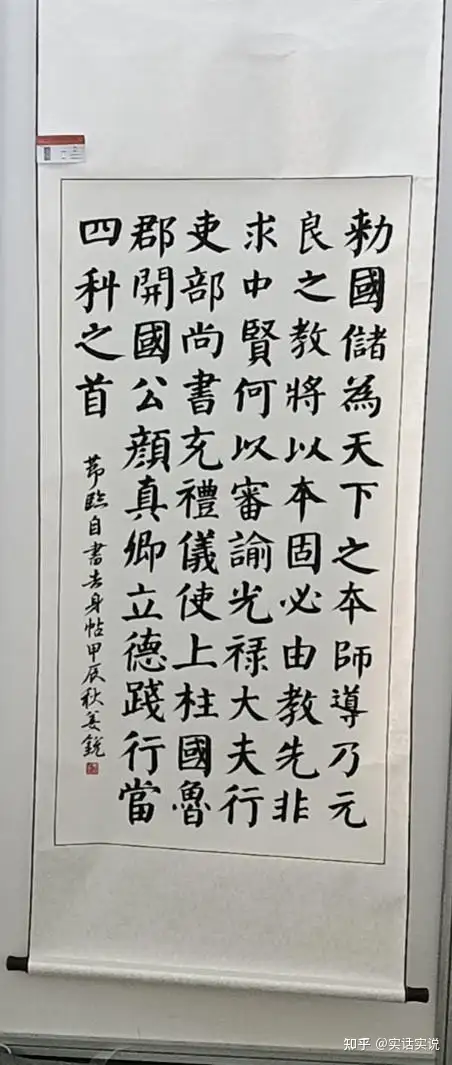 勑國儲為天下之本師導乃元
良之教將以本固必由教先非
求中賢何以審諭光禄大夫行
吏部尚書充禮儀使上柱國魯
郡開國公顏真卿立德踐行當
四科之首
節臨自書告身帖甲辰秋姜銳
知乎 @实话实说